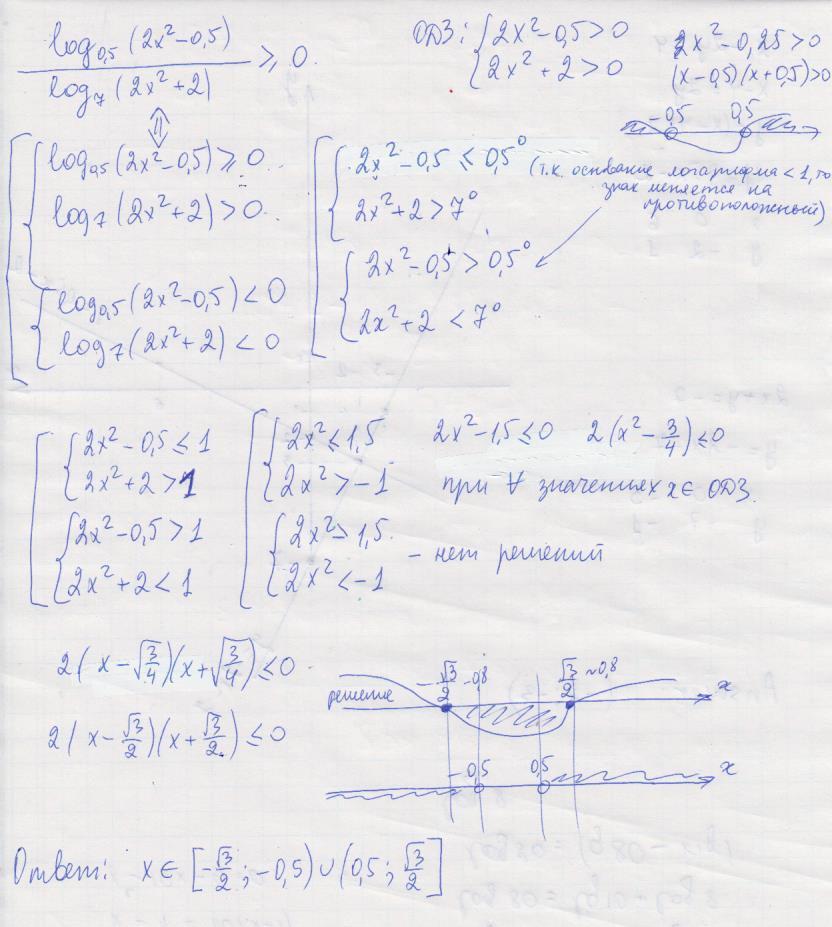 log₀,₅(2x²-0,5) / log₇(2x²+2) ⩾ 0.
ОДЗ: { 2x²-0,5>0
2x²+2>0
2x²-0,25>0
(x-0,5)(x+0,5)>0
-0,5 0,5
⇕
[ { log₀,₅(2x²-0,5) ⩾ 0
log₇(2x²+2)>0
{ log₀,₅(2x²-0,5)<0
log₇(2x²+2)<0
[ { 2x²-0,5 ≤ 0,5⁰
2x²+2>7⁰
{ 2x²-0,5>0,5⁰
2x²+2<7⁰
(т.к. основание логарифма <1, то
знак меняется на
противоположный)
[ { 2x²-0,5 ≤ 1
2x²+2>1
{ 2x²-0,5>1
2x²+2<1
[ { 2x² ≤ 1,5
2x²>-1
{ 2x²>1,5
2x²<-1
2x²-1,5 ≤ 0 2(x²-3/4) ≤ 0
при ∀ значениях x∈ ОДЗ.
- нет решений
2(x-√(3/4))(x+√(3/4)) ≤ 0
2(x-√3/2)(x+√3/2) ≤ 0
решение -√3/2 -0,8 √3/2 ~0,8 x
-0,5 0,5 x
Ответ: x∈[-√3/2; -0,5)∪(0,5; √3/2]